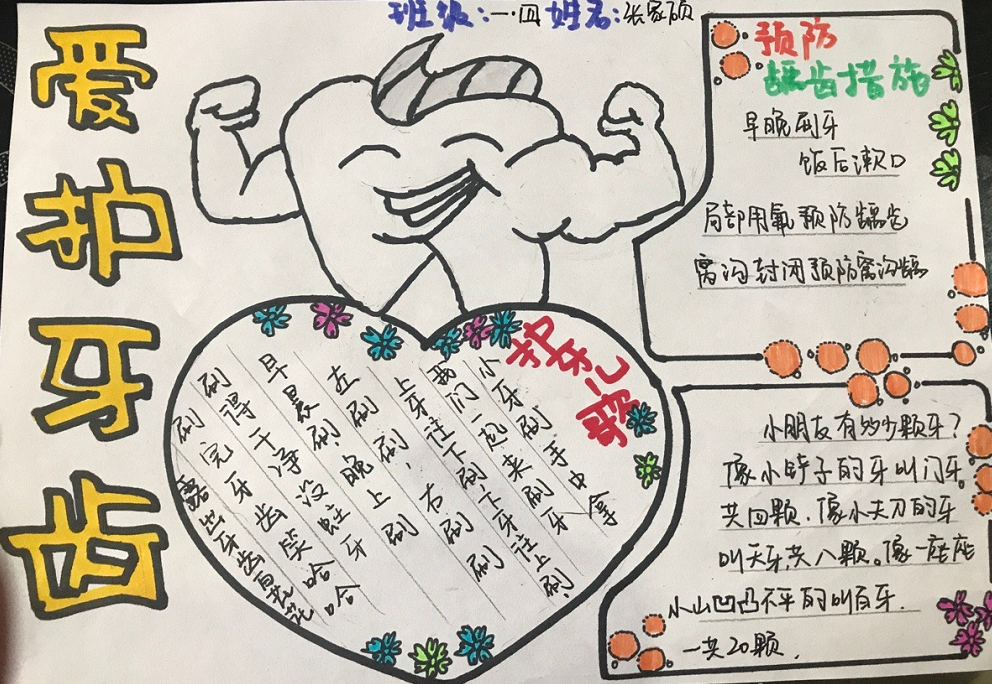 爱护牙齿
班级:一·四 姓名:张家硕
预防
龋齿措施
早晚刷牙
饭后漱口
局部用氟预防龋齿
窝沟封闭预防窝沟龋
护牙儿歌
小牙刷手中拿
我们一起来刷牙
上牙往下刷下牙往上刷
左刷刷,右刷刷
早晨刷晚上刷
刷得干净没蛀牙
刷完牙齿笑哈哈
露出牙齿白花花
小朋友有多少颗牙?
像小铲子的牙叫门牙。
共四颗.像小尖刀的牙
叫犬牙共八颗。像一座座
小山凹凸不平的叫臼牙.
一共20颗.